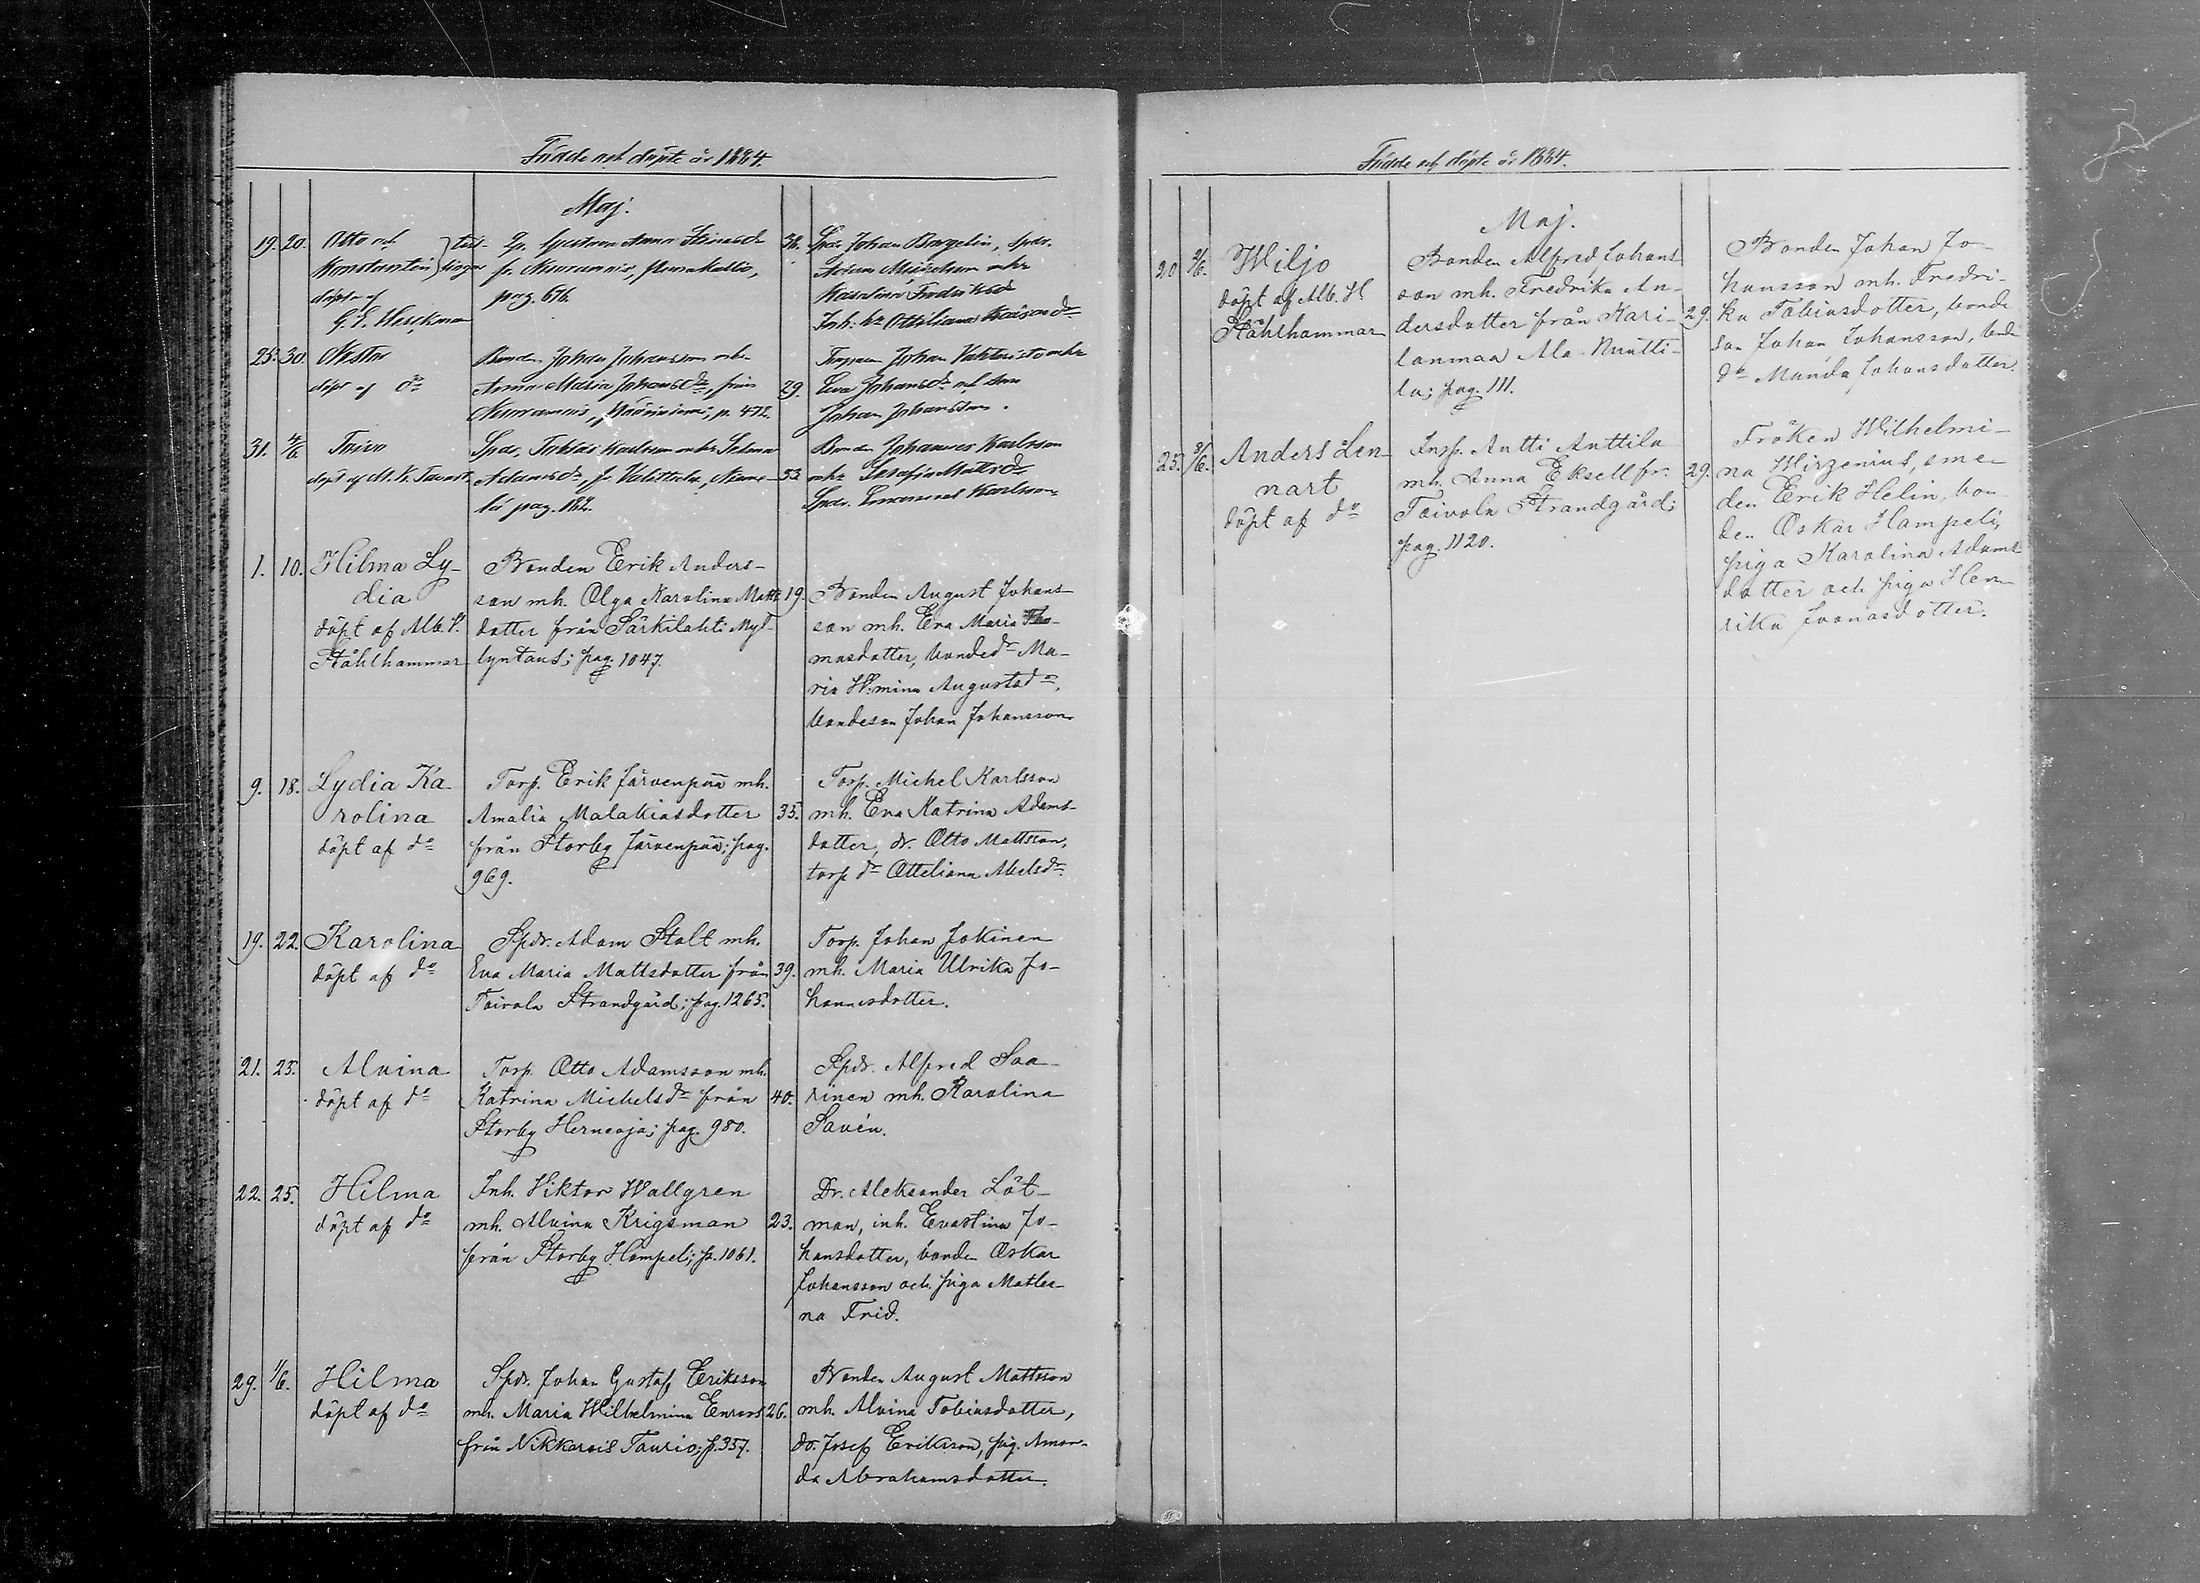 Födde och döpte år 1884.
Maj.
19. 20. Otto och
Konstantin
döpte af
G. E. Heickman
pag. 616.
36. Spdr. Johan Bergelin, spdr.
Karolina Fredriksdr
Inh. hr Ottiliana
25. 30. Nestor
döpt af do
Bonden Johan Johansson mh.
Anna Maria Johansdr, från
p. 472.
29. Johan mh
Eva Johansdr och
Johan Johansson.
31. 4/6. Toivo
döpt af M. K. Tavast
Spdr. Tobias Karlsson mh. Selma
Adamsdr, fr.
pag. 162.
53. Bonden Johannes Karlsson
mh. Serafia Mattsdr
Spdr. Emanuel Karlsson
1. 10. Hilma Ly-
dia
döpt af Alb. H.
Ståhlhammar
Bonden Erik Anders-
son mh. Olga Karolina Matts-
dotter från Särkilahti Myl-
lyntaus; pag. 1047.
19. Bonden August Johans-
son mh. Eva Maria Tho-
masdotter, bondedr Ma-
ria W:mina Augustsdr,
bondeson Johan Johansson
9. 18. Lydia Ka-
rolina
döpt af do
Torp. Erik Järvenpää mh.
Amalia Malakiasdotter
från Storby Järvenpää; pag.
969.
35. Torp. Michel Karlsson
mh. Eva Katrina Adams-
dotter, dr. Otto Mattsson,
torp. dr Otteliana Abelsdr
19. 22. Karolina
döpt af do
Spdr. Adam Stolt mh.
Eva Maria Mattsdotter från
Toivola Strandgård; pag. 1265.
39. Torp. Johan Jokinen
mh. Maria Ulrika Jo-
hannesdotter.
21. 25. Alvina
döpt af do
Torp. Otto Adamsson mh.
Katrina Michelsdr från
Storby Herneoja; pag. 980.
40. Spdr. Alfred Saa-
rinen mh. Karolina
Savén.
22. 25. Hilma
döpt af do
Inh. Viktor Wallgren
mh. Alvina Krigsman
från Storby Hampeli; p. 1061.
23. Dr. Aleksander Löt-
man, inh. Evastina Jo-
hansdotter, bonden Oskar
Johansson och piga Matle-
na Frid.
29. 1/6. Hilma
döpt af do
Spdr. Johan Gustaf Eriksson
mh. Maria Wilhelmina Enrors
från Nikkarois Taurio; p. 357.
26. Bonden August Mattsson
mh. Alvina Tobiasdotter,
do. Josef Eriksson, pig. Aman-
da Abrahamsdotter.
Födde och döpte år 1884.
Maj.
20 2/6. Wiljo
döpt af Alb. H
Ståhlhammar
Bonden Alfred Johans-
son mh. Fredrika An-
dersdotter från Kari-
lanmaa Ala-Nuutti-
la; pag. 111.
29. Bonden Johan Jo-
hansson mh. Fredri-
ka Tobiasdotter, bonde
son Johan Johansson, bonde
dr Manda Johansdotter.
25. 3/6. Anders Len-
nart
döpt af do
Insp. Antti Anttila
mh. Anna Eksell fr.
Toivola Strandgård;
pag. 1120.
29. Fröken Wilhelmi-
na Hirzenius, sme-
den Erik Helin, bon-
den Oskar Hampeli,
piga Karolina Adams-
dotter och piga Hen-
rika Joonasdotter.